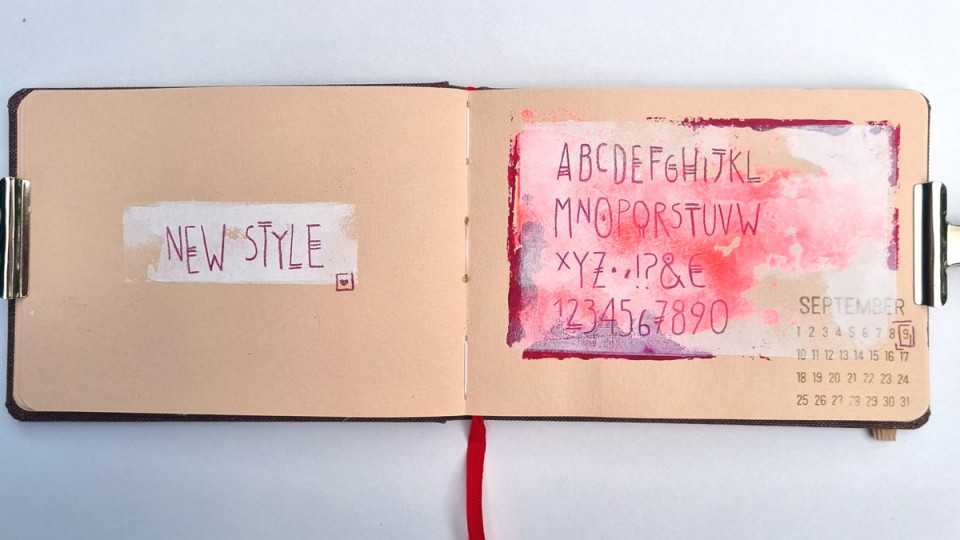 NEW STYLE
ABCDEFGHIJKL
MNOPQRSTUVW
XYZ..!?&€
1234567890
SEPTEMBER
1 2 3 4 5 6 7 8 9
10 11 12 13 14 15 16 17
18 19 20 21 22 23 24
25 26 27 28 29 30 31